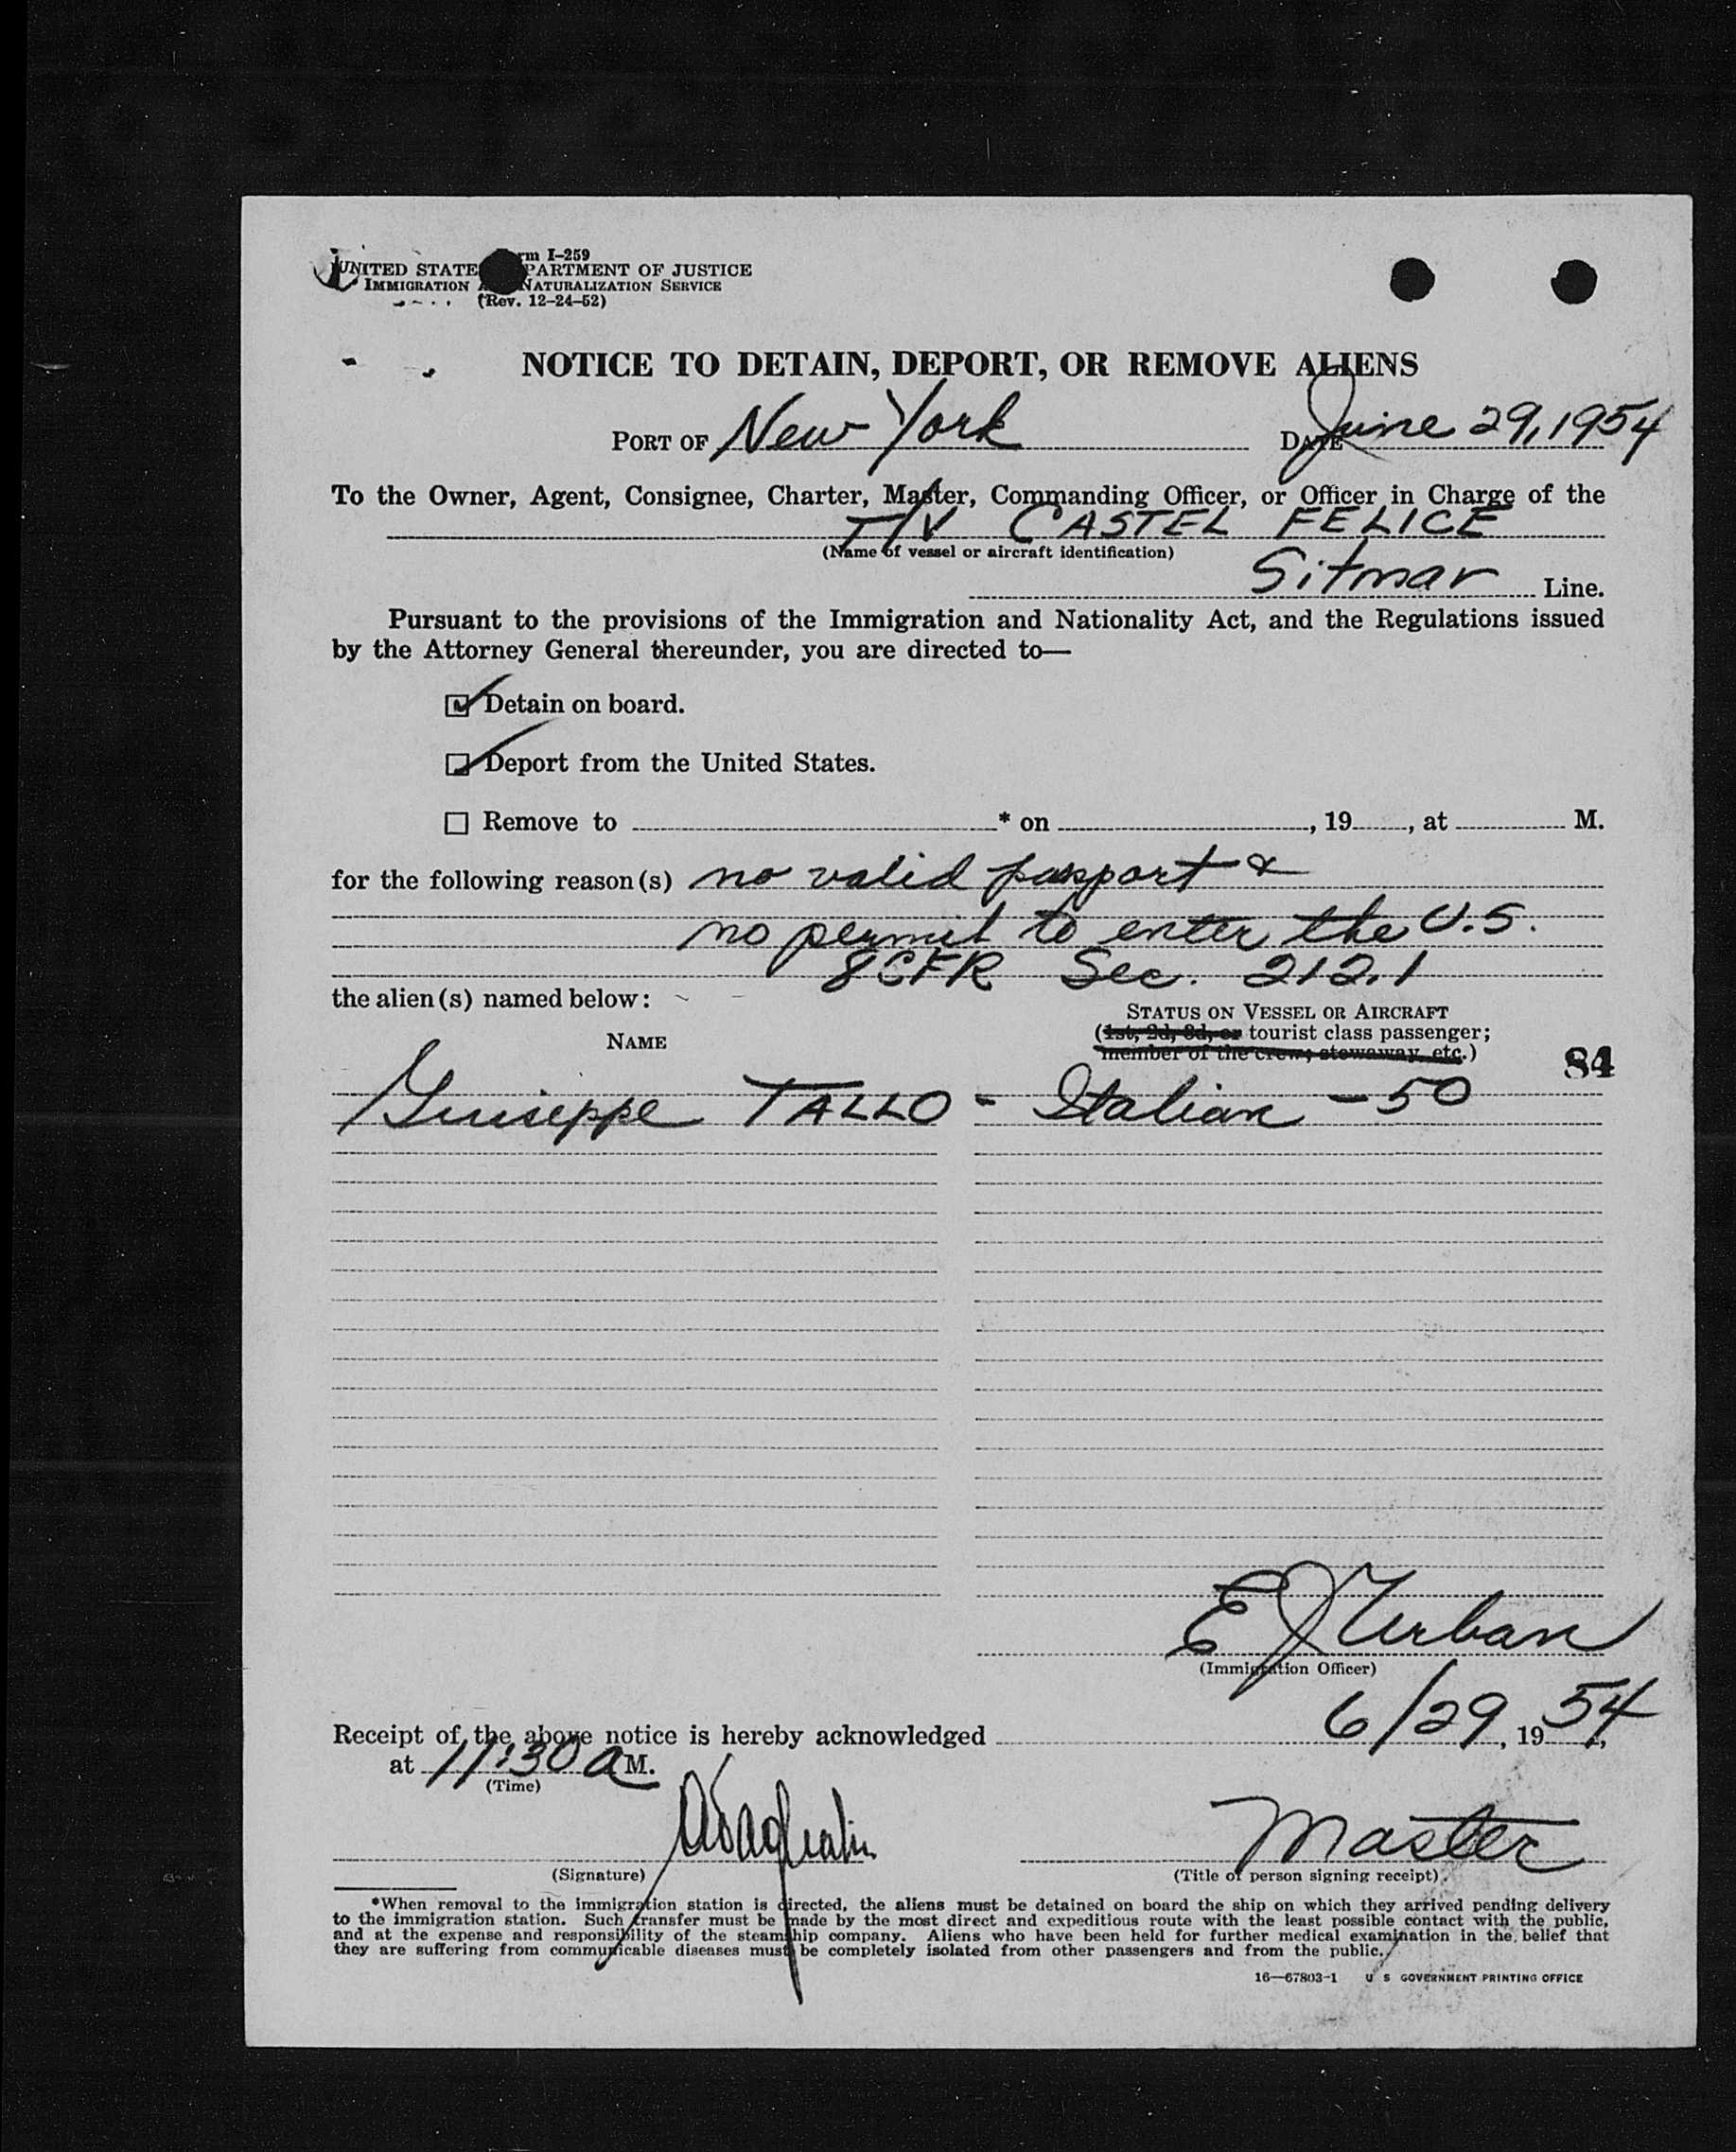 Form I-259
UNITED STATES DEPARTMENT OF JUSTICE
IMMIGRATION AND NATURALIZATION SERVICE
(Rev. 12-24-52)
NOTICE TO DETAIN, DEPORT, OR REMOVE ALIENS
PORT OF New York DATE June 29, 1954
To the Owner, Agent, Consignee, Charter, Master, Commanding Officer, or Officer in Charge of the
T/V CASTEL FELICE
(Name of vessel or aircraft identification)
Sitmar Line.
Pursuant to the provisions of the Immigration and Nationality Act, and the Regulations issued
by the Attorney General thereunder, you are directed to—
Detain on board.
Deport from the United States.
Remove to * on , 19 , at M.
for the following reason(s) no valid passport &
no permit to enter the U.S.
8CFR Sec. 212.1
the alien(s) named below:
STATUS ON VESSEL OR AIRCRAFT
NAME (1st, 2d, 3d, or tourist class passenger;
member of the crew; stowaway, etc.)
84
Giuseppe TALLO - Italian - 50
E J Urban
(Immigration Officer)
Receipt of the above notice is hereby acknowledged 6/29, 1954,
at 11:30 a M.
(Time)
Master
(Signature) (Title of person signing receipt)
*When removal to the immigration station is directed, the aliens must be detained on board the ship on which they arrived pending delivery
to the immigration station. Such transfer must be made by the most direct and expeditious route with the least possible contact with the public,
and at the expense and responsibility of the steamship company. Aliens who have been held for further medical examination in the belief that
they are suffering from communicable diseases must be completely isolated from other passengers and from the public.
16—67803-1 U S GOVERNMENT PRINTING OFFICE